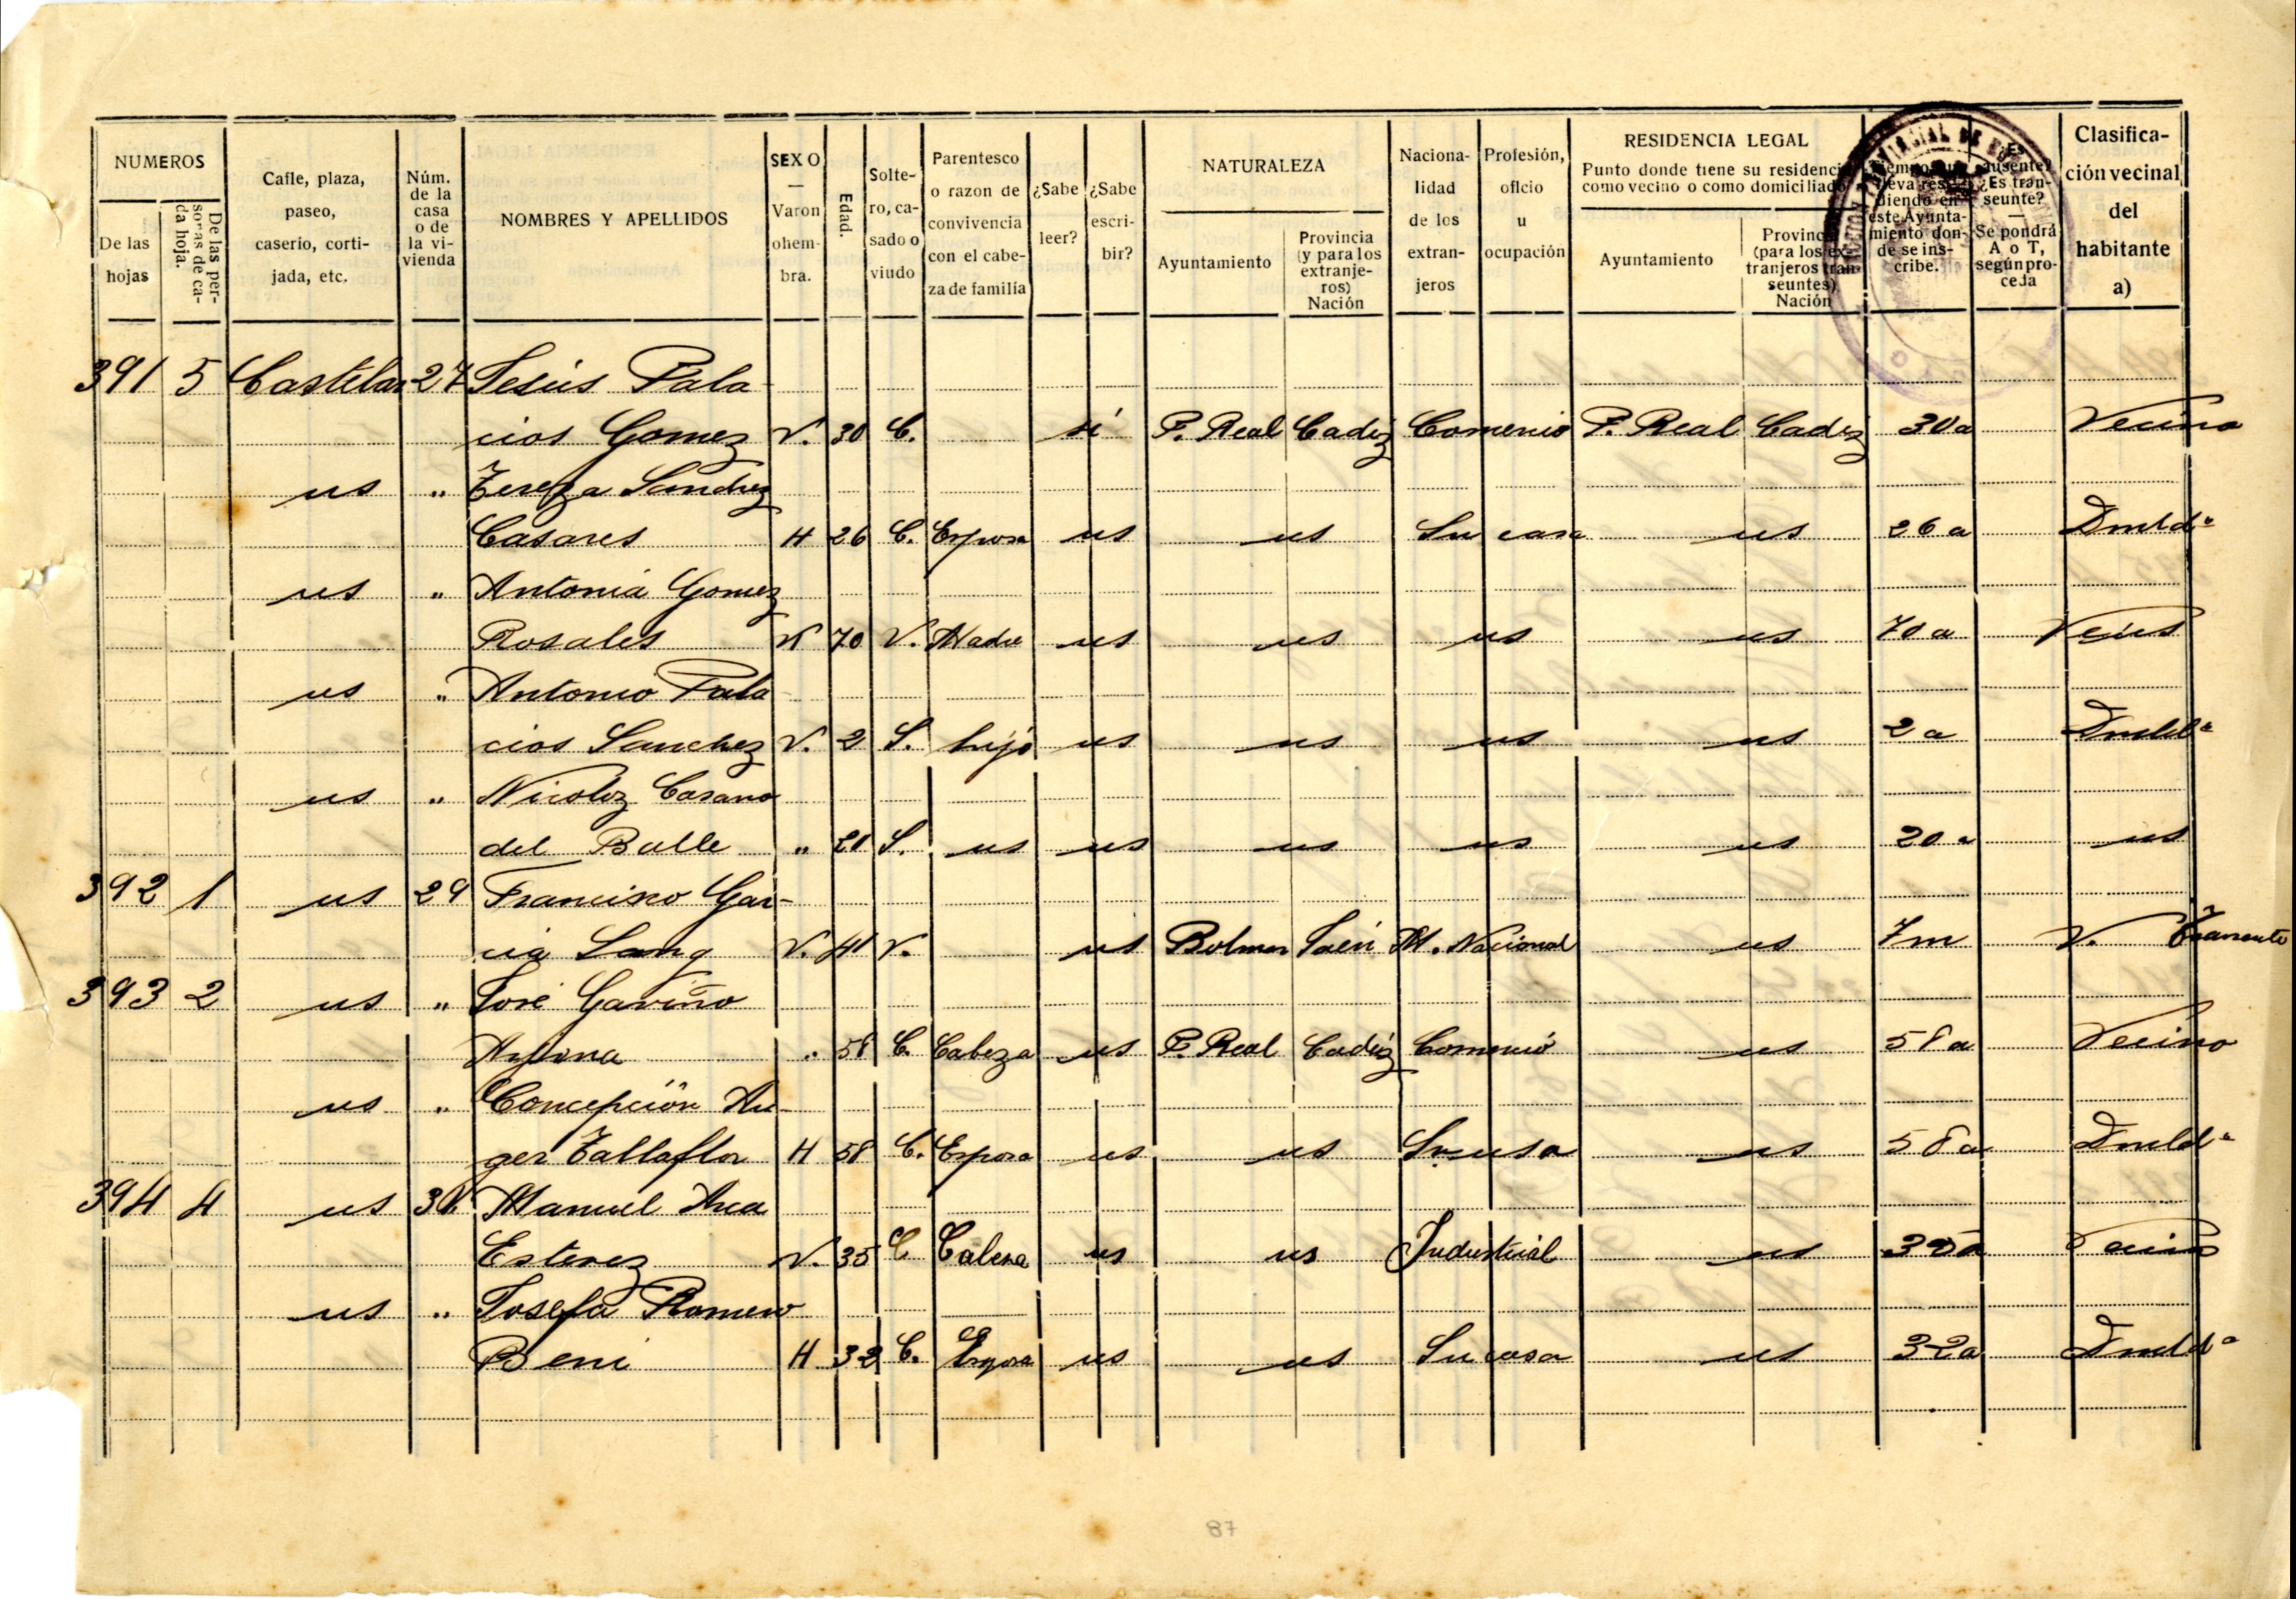 NUMEROS
De las hojas
De las personas de cada hoja.
Calle, plaza, paseo, caserio, cortijada, etc.
Núm. de la casa o de la vivienda
NOMBRES Y APELLIDOS
SEXO — Varon o hembra.
Edad.
Soltero, casado o viudo
Parentesco o razon de convivencia con el cabeza de familia
¿Sabe leer?
¿Sabe escribir?
NATURALEZA
Ayuntamiento
Provincia (y para los extranjeros) Nación
Nacionalidad de los extranjeros
Profesión, oficio u ocupación
RESIDENCIA LEGAL
Punto donde tiene su residencia como vecino o como domiciliado
Ayuntamiento
Provincia (para los extranjeros transeuntes) Nación
diendo en este Ayuntamiento donde se inscribe.
ausente? ¿Es transeunte? — Se pondrá A o T, según proceda
Clasificación vecinal del habitante a)
391 5 Castelar 27 Jesús Pala
cios Gomez V. 30 C. si P. Real Cadiz Comercio P. Real Cadiz 30 a Vecino
us " Tereza Sanchez
Casares H 26 C. Esposa us us Su casa us 26 a Dmld.ª
us " Antonia Gomez
Rosales H 70 V. Madre us us us us 70 a
us " Antonio Pala
cios Sanchez V. 2 S. hijo us us us us 2 a Dmld.ª
us "
del Balle " S. us us us us us 20 a us
392 1 us 29 Francisco Gar-
cia V. 41 V. us Jaen M. Nacional us 7 m V.
393 2 us " José Gaviño
" 58 C. Cabeza us P. Real Cadiz Comercio us 58 a Vecino
us " Concepción An-
ger H 58 C. Esposa us us us 58 a Dmld.ª
394 4 us Manuel
Estevez V. 35 C Cabeza us us Industrial us Vecino
us " Josefa Romero
Beni H 32 C. Esposa us us Su casa us 32 a Dmld.ª
87